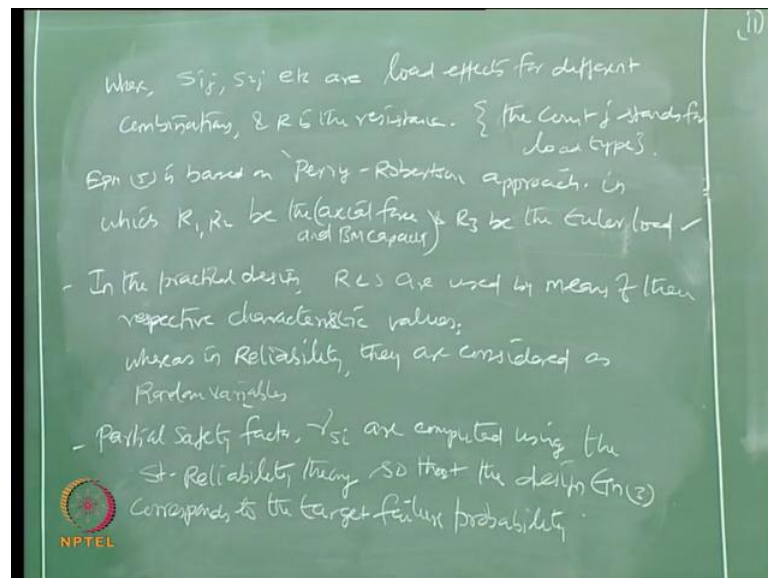 11)
Where, Sij, S2j etc are load effects for different
Combinations, & R is the resistance. { the const j stands for
load type}.
Eqn (5) is based on Perry-Robertson approach. in
which R1, R2 be the (axial force & R3 be the Euler load
and BM capacity)
- In the practical design, R & S are used by means of their
respective characteristic values,
whereas in Reliability, they are considered as
Random variables
- Partial safety factor, γsi are computed using the
St-Reliability theory so that the design Eqn (3)
corresponds to the target failure probability
NPTEL